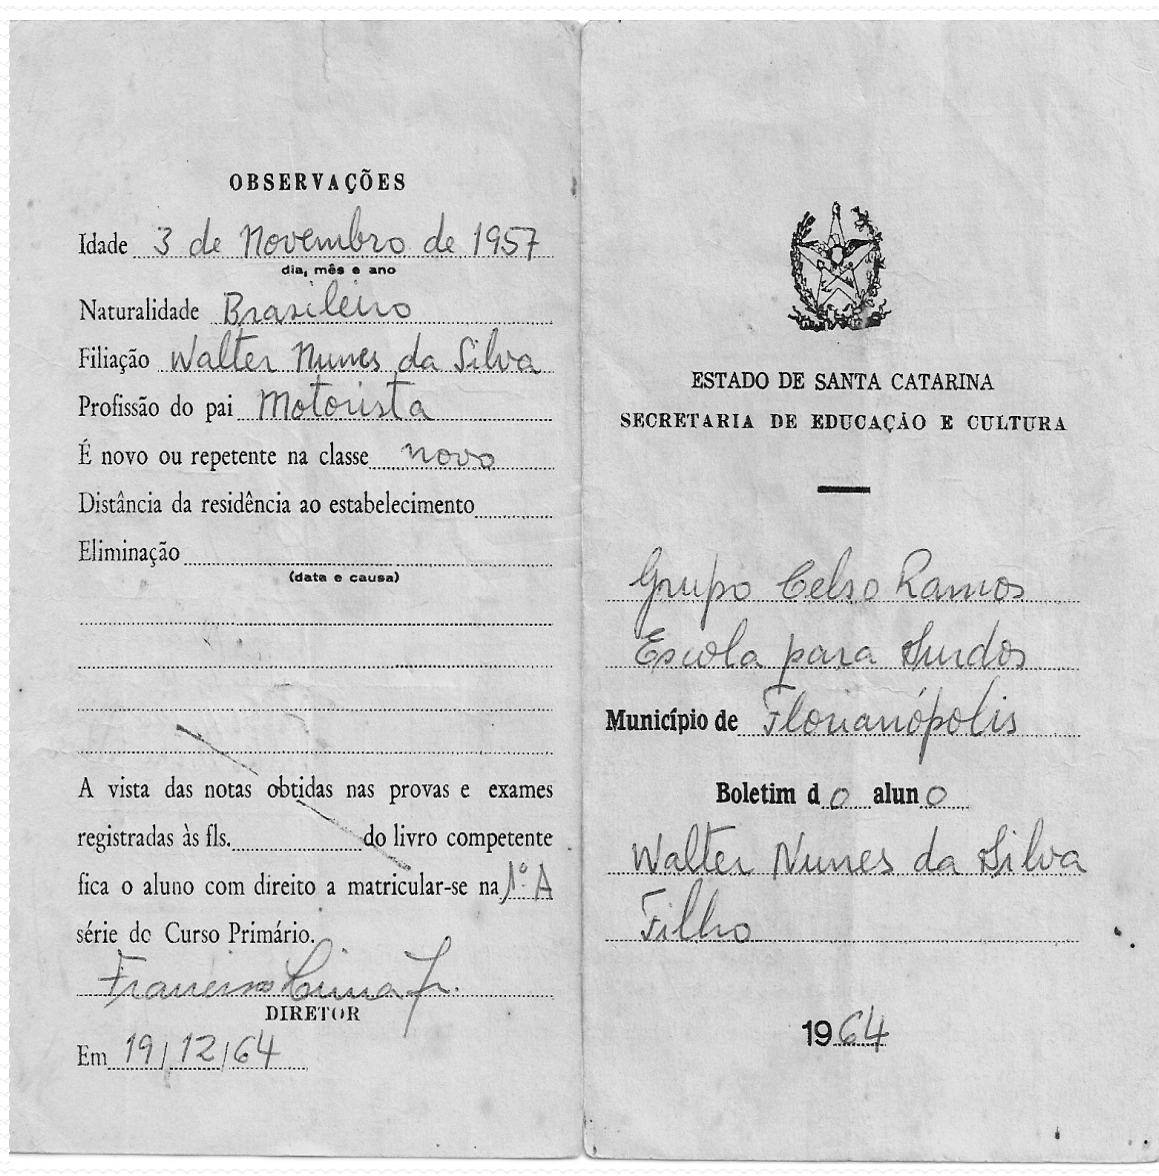 OBSERVAÇÕES
Idade 3 de Novembro de 1957
dia, mês e ano
Naturalidade Brasileiro
Filiação Walter Nunes da Silva
Profissão do pai Motorista
É novo ou repetente na classe novo
Distância da residência ao estabelecimento
Eliminação
(data e causa)
A vista das notas obtidas nas provas e exames
registradas às fls. do livro competente
fica o aluno com direito a matricular-se na 1º A
série do Curso Primário.
Francisco Lima Jr.
DIRETOR
Em 19/12/64
ESTADO DE SANTA CATARINA
SECRETARIA DE EDUCAÇÃO E CULTURA
Grupo Celso Ramos
Escola para Surdos
Município de Florianópolis
Boletim do aluno
Walter Nunes da Silva
Filho
1964